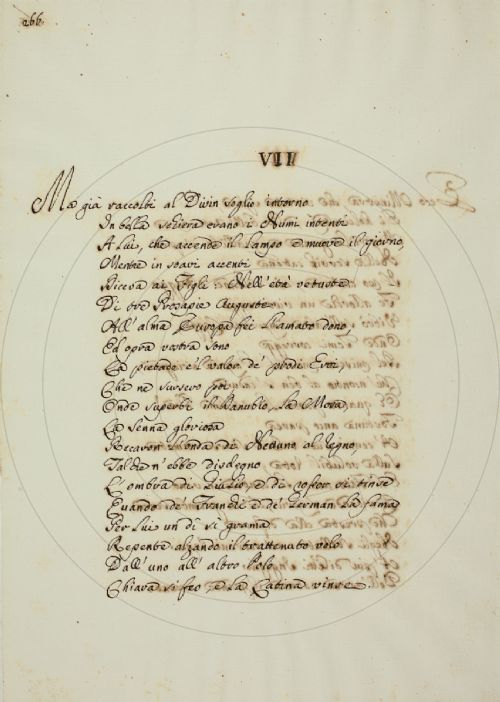 266.
VII
Ma già raccolti al Divin soglio intorno
In bella schiera erano i Numi intenti
A Lui, che accende il lampo e muove il giorno,
Mentre in soavi accenti
Diceva ai Figli Nell'età vetuste
Di tre Prosapie Auguste
All'alma Europa fei bramato dono,
Ed opra vostra sono
La pietade e il valor de' prodi Eroi,
Che ne sursero poi
Onde superbi il Danubio, La Mosa,
La Senna gloriosa
Recaron l'onda di Nettuno al regno,
Talch'n'ebbe disdegno
L'ombra di Giulio, e di rossor si tinse
Quando de' Franchi e de' German La fama
Per Lui un dì sì grama
Repente alzando il trattenuto volo
Dall'uno all'altro Polo
Chiara si feo e La Latina vinse